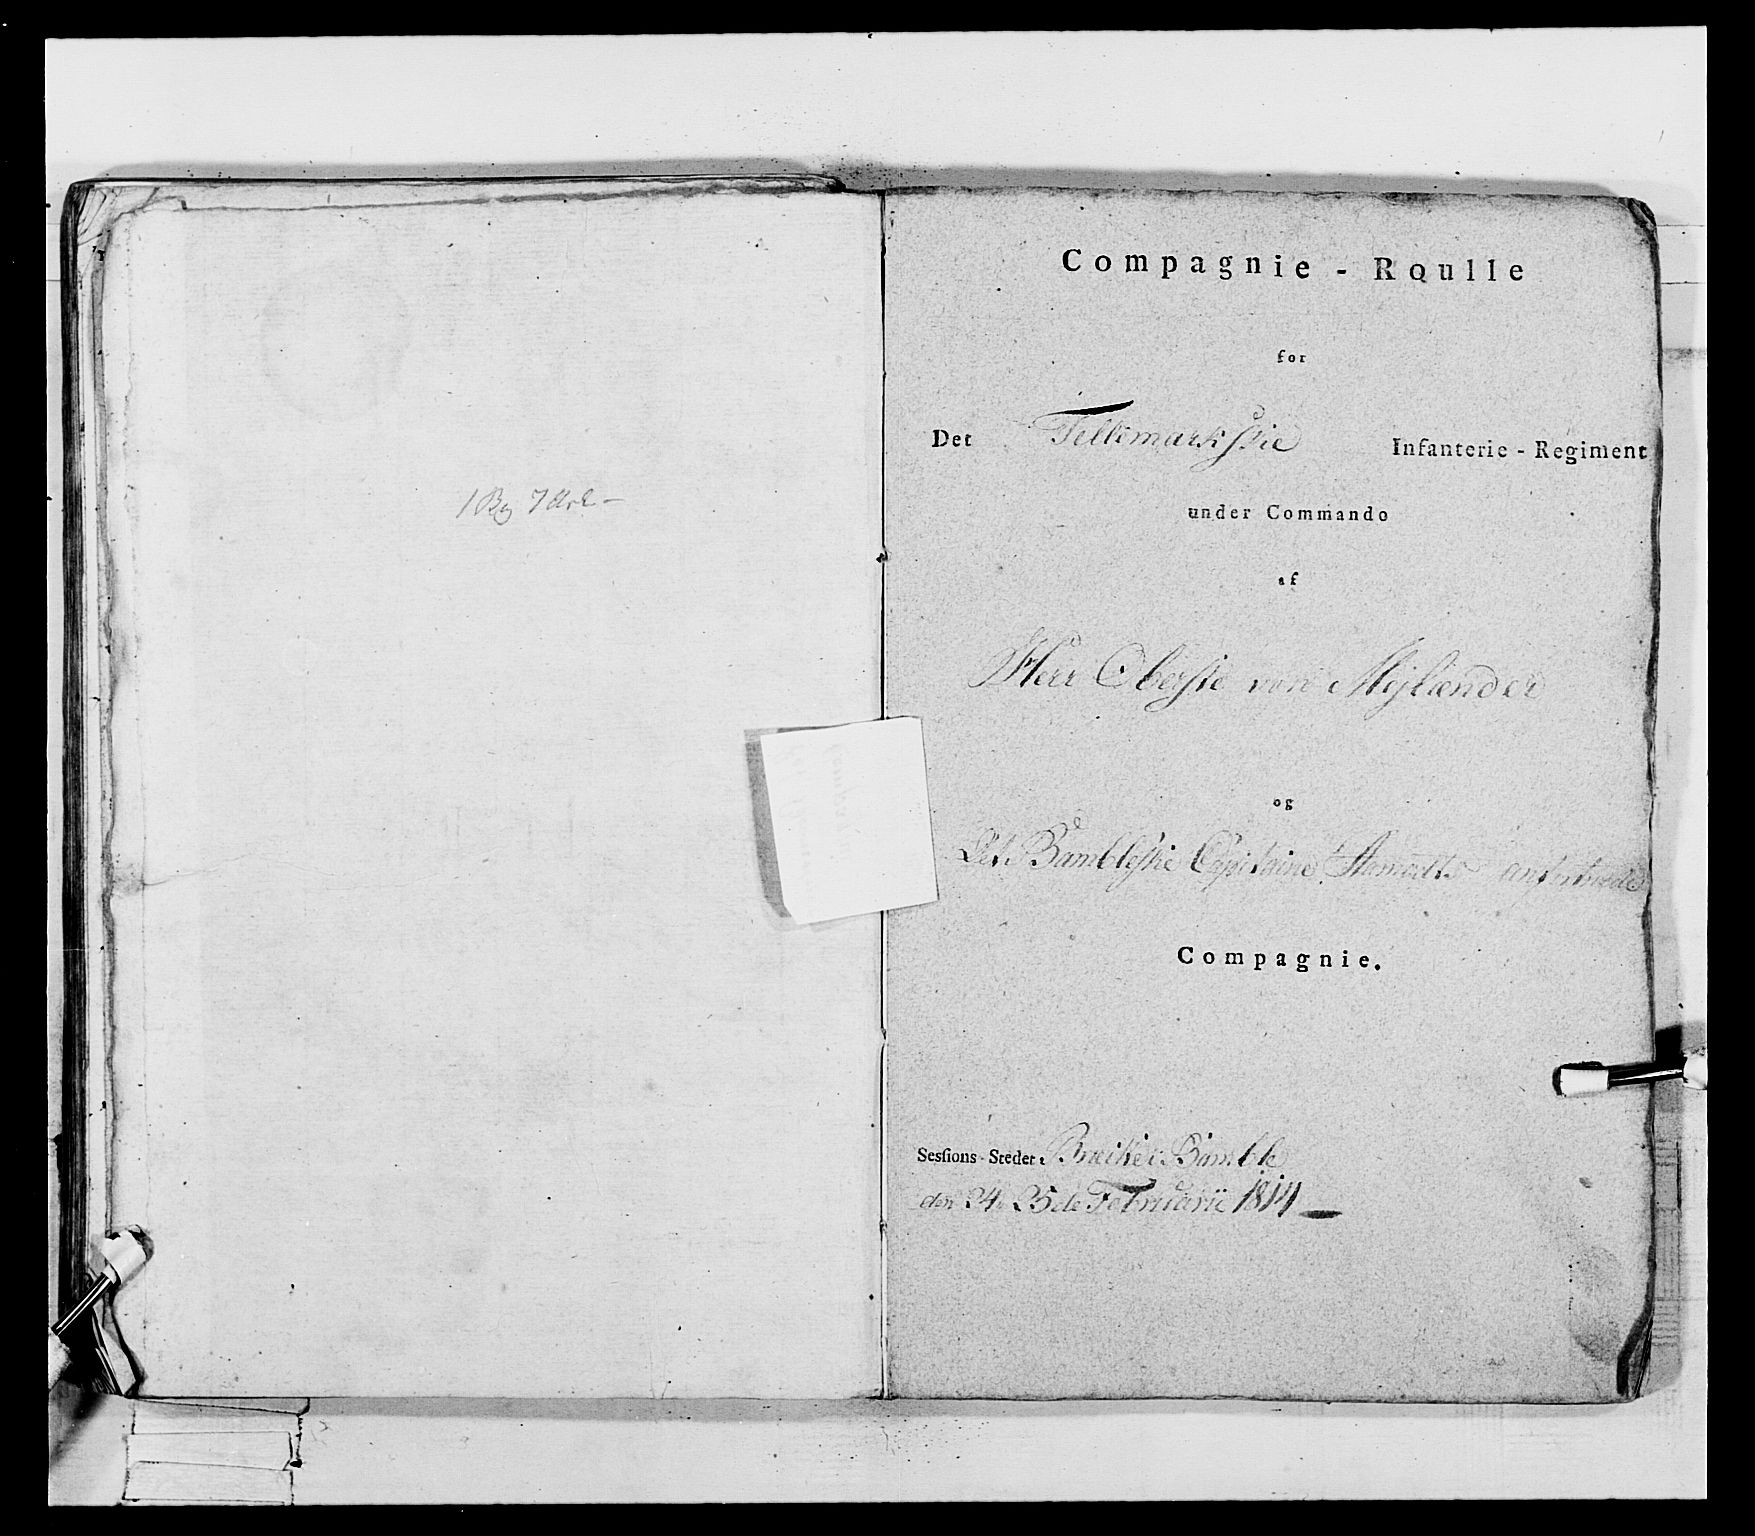 Compagnie - Roulle
for
Det Tellemarkske Infanterie - Regiment
under Commando
af
Herr Oberste von Mejlænder
og
Det Bambleske Capitaine anfortroede
Compagnie.
Sessions-Steder Bamble
den 24 25de Februarii 1814